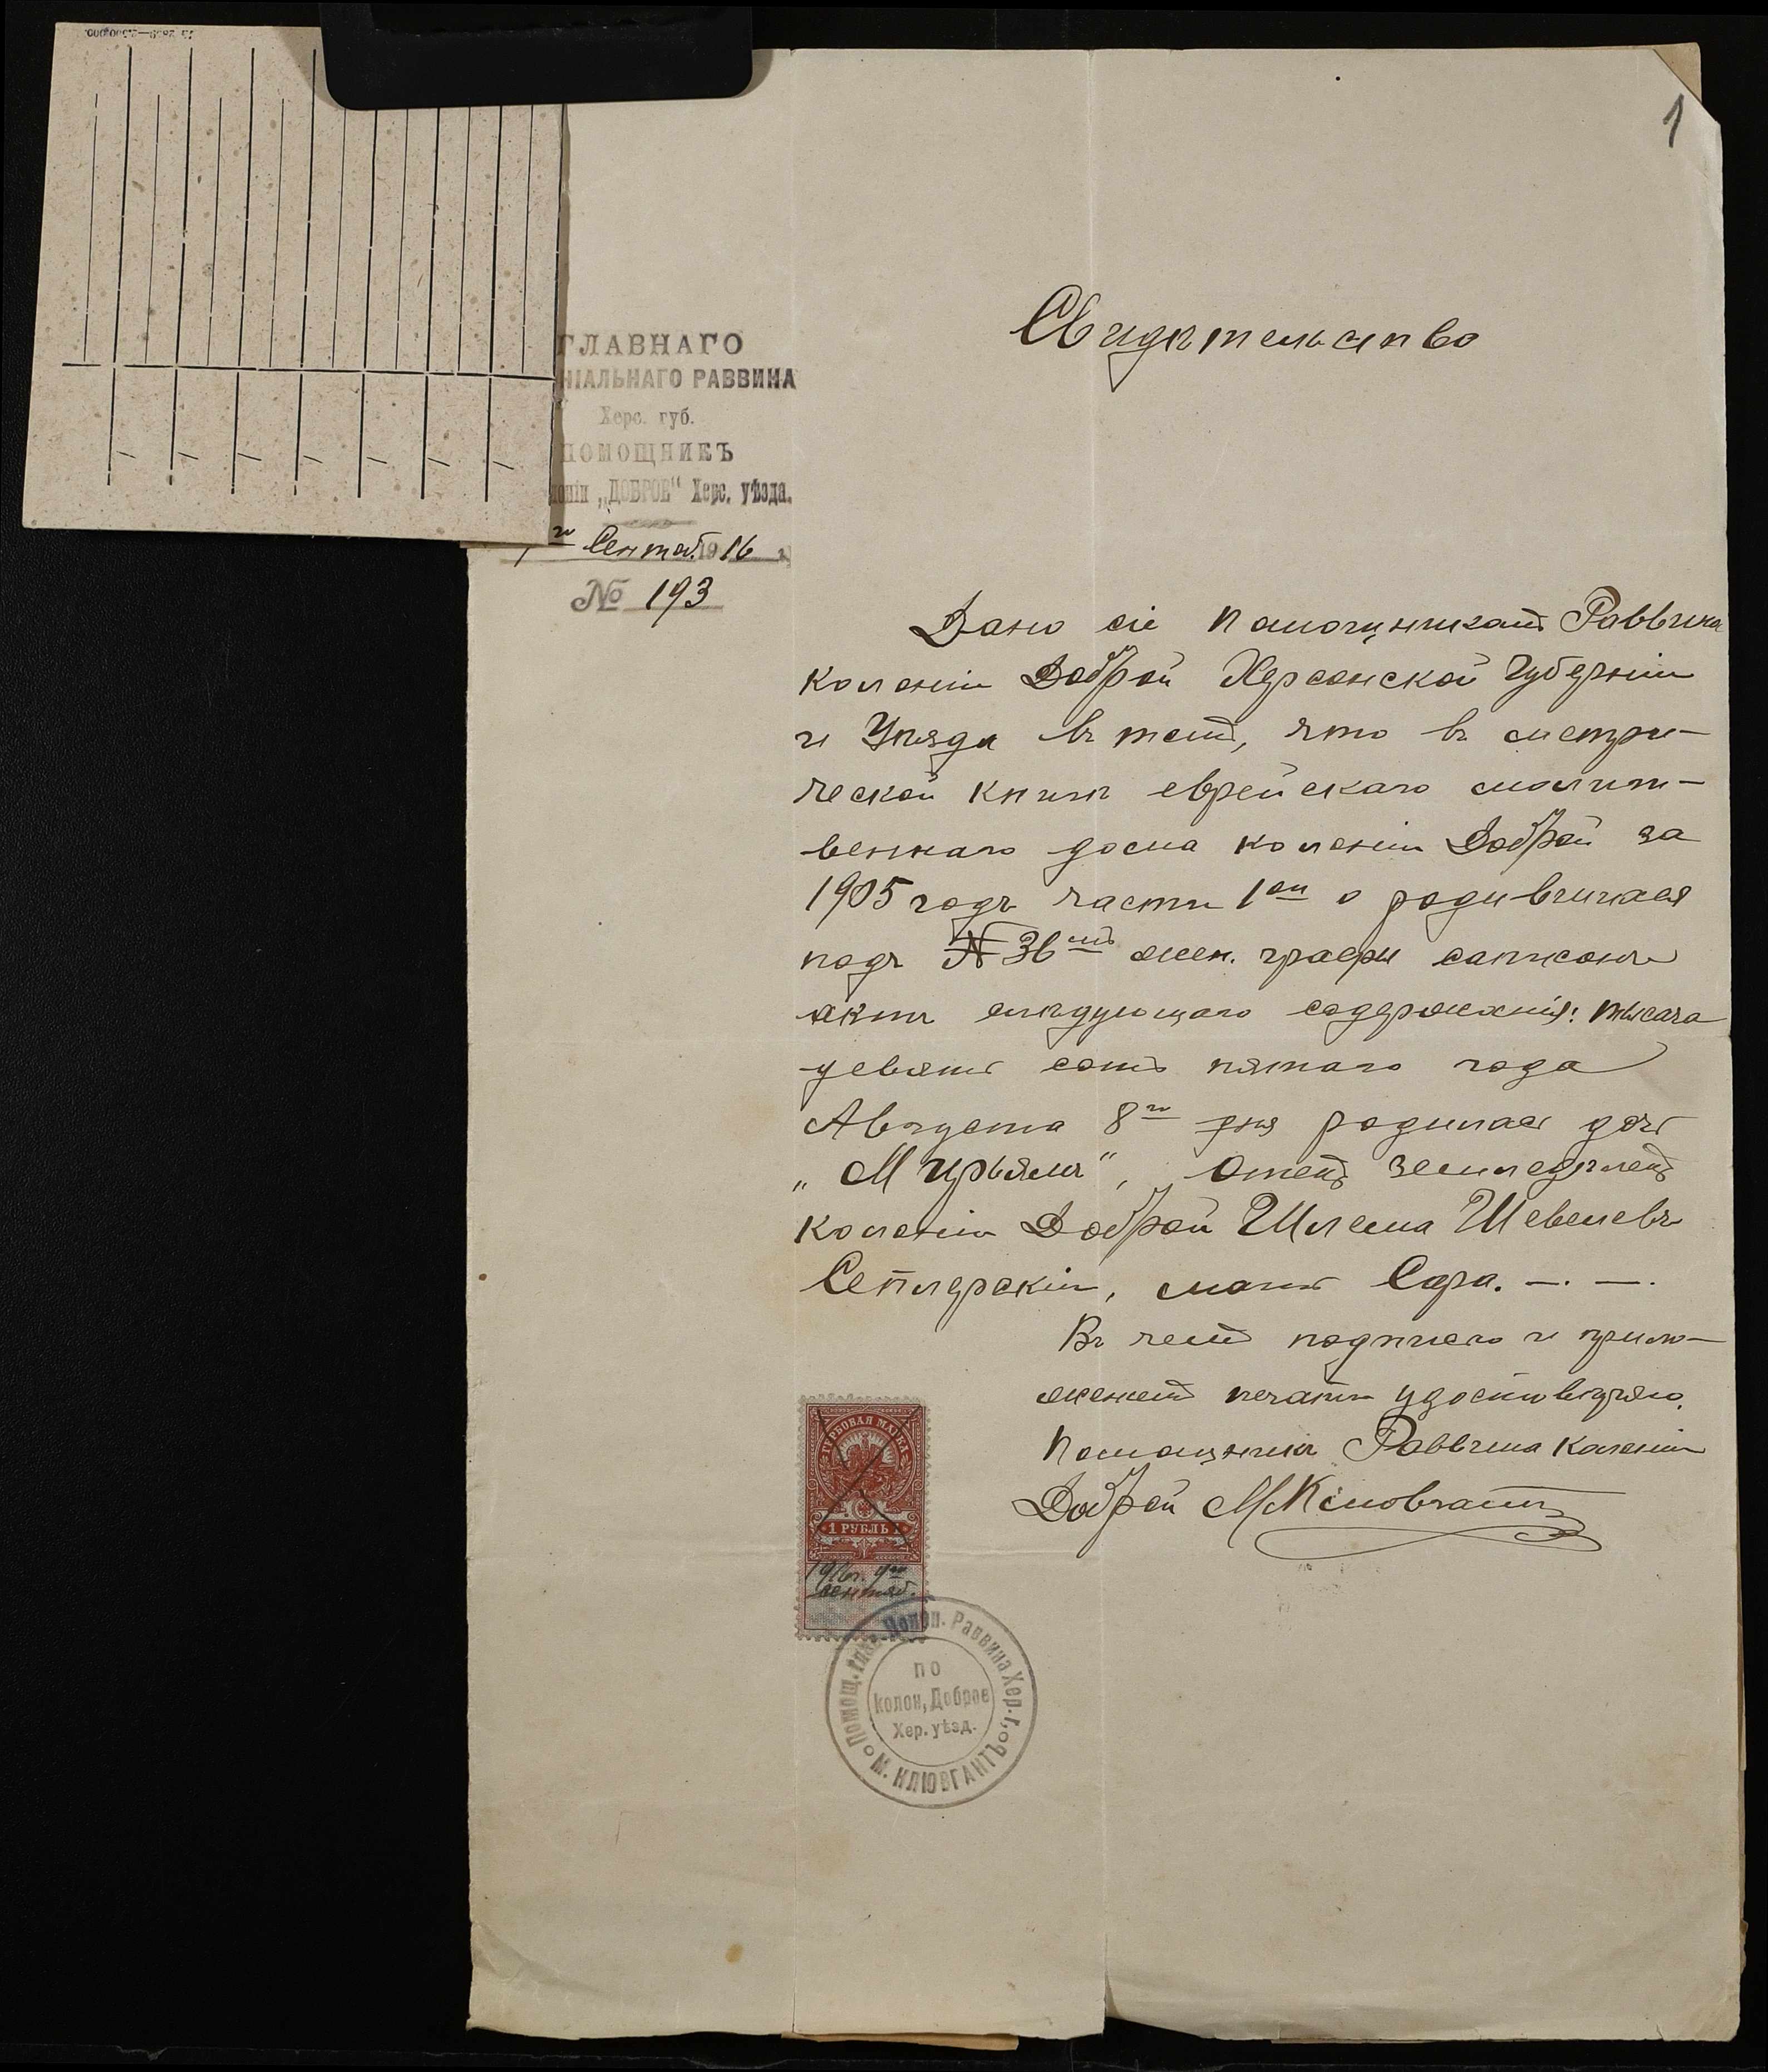 1
ГЛАВНАГО
НІАЛЬНАГО РАВВИНА
Херс. губ.
ПОМОЩНИКЪ
лоніи „ДОБРОЕ" Херс. уѣзда.
го Сентяб. 1916 г.
№ 193
Свидѣтельство
Дано сіе Помощникомъ Раввина
колоніи Доброй Херсонской Губерніи
и Уѣзда въ томъ, что въ метри-
ческой книгѣ еврейскаго молит-
веннаго дома колоніи Доброй за
1905 годъ части 1ой о родившихся
подъ № 36мъ жен. графы записанъ
актъ слѣдующаго содержанія: тысяча
девять сотъ пятаго года
Августа 8го дня родилась дочь
„Мирьямъ", Отецъ земледѣлецъ
колоніи Доброй Шлема Шевелевъ
Сеплярскій, мать Сара. —. —.
Въ чемъ подписью и прило-
женіемъ печати удостовѣряю.
Помощникъ Раввина колоніи
Доброй М Клювгантъ
ГЕРБОВАЯ МАРКА
1 РУБЛЬ 1
1916 г. 9го
сентяб.
Помощ. глав. Колон. Раввина Хер. г.
М. КЛЮВГАНТЪ
по
колон, Доброе
Хер. уѣзд.